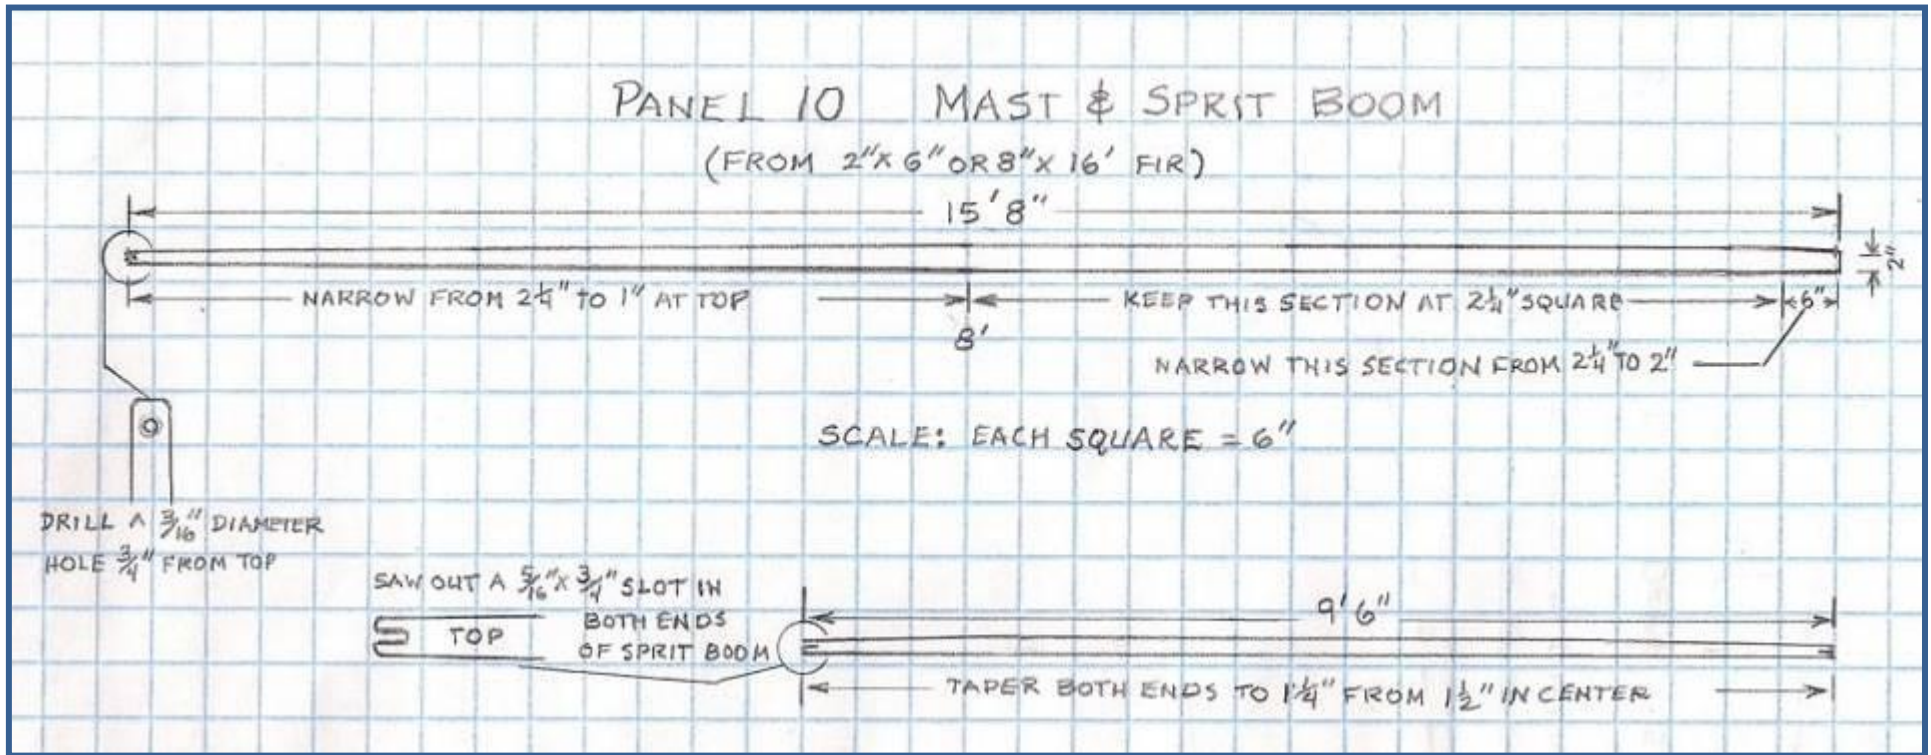 PANEL 10 MAST & SPRIT BOOM
(FROM 2"X 6" OR 8" X 16' FIR)
15'8"
2"
NARROW FROM 2 1/4" TO 1" AT TOP
KEEP THIS SECTION AT 2 1/4" SQUARE
6"
8'
NARROW THIS SECTION FROM 2 1/4" TO 2"
SCALE: EACH SQUARE = 6"
DRILL A 3/16" DIAMETER
HOLE 3/4" FROM TOP
SAW OUT A 5/16" X 3/4" SLOT IN
BOTH ENDS
OF SPRIT BOOM
TOP
9'6"
TAPER BOTH ENDS TO 1 1/4" FROM 1 1/2" IN CENTER